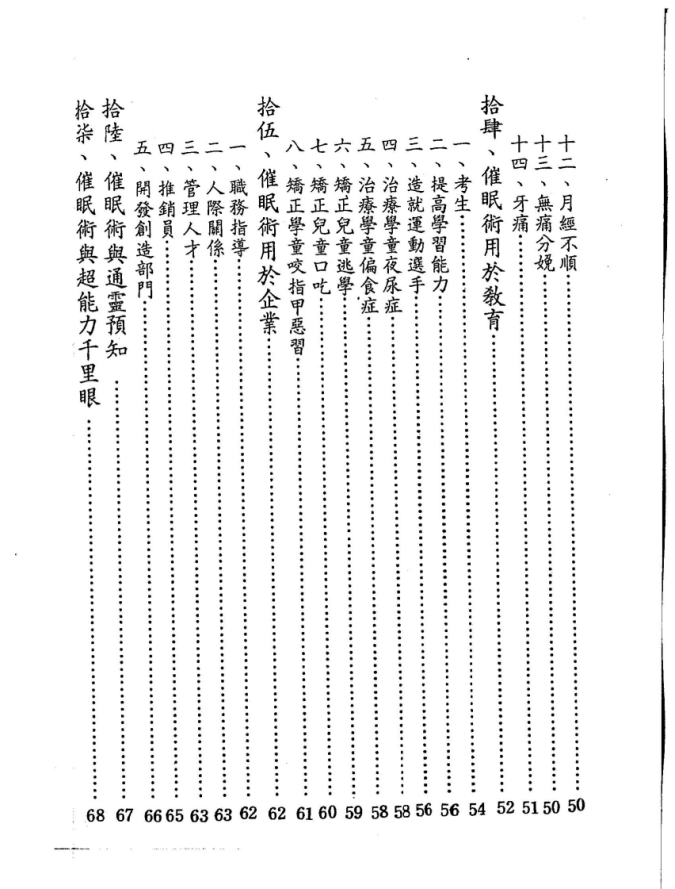 十二、月經不順……50
十三、無痛分娩……50
十四、牙痛……51
拾肆、催眠術用於教育……52
一、考生……54
二、提高學習能力……56
三、造就運動選手……56
四、治療學童夜尿症……58
五、治療學童偏食症……58
六、矯正兒童逃學……59
七、矯正兒童口吃……60
八、矯正學童咬指甲惡習……61
拾伍、催眠術用於企業……62
一、職務指導……62
二、人際關係……63
三、管理人才……63
四、推銷員……65
五、開發創造部門……66
拾陸、催眠術與通靈預知……67
拾柒、催眠術與超能力千里眼……68